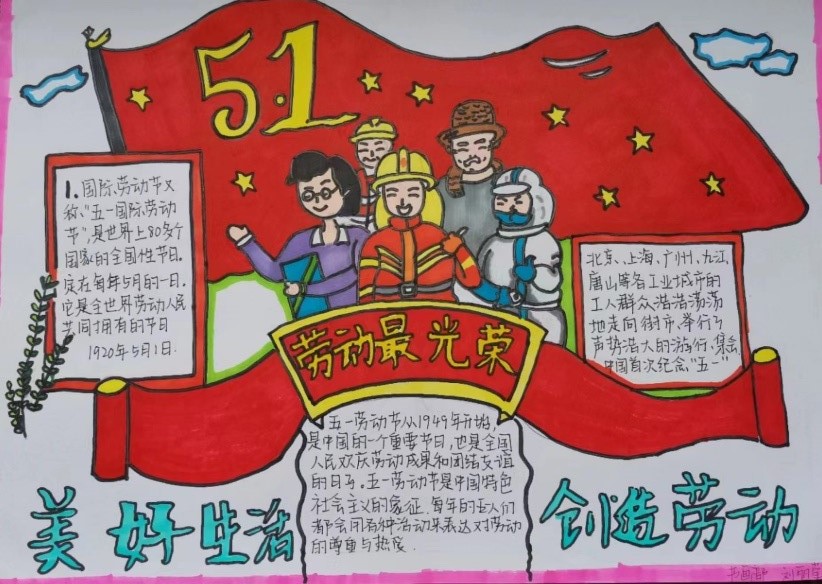 5.1
1.国际劳动节又
称"五一国际劳动
节",是世界上80多个
国家的全国性节日。
定在每年5月的一日.
它是全世界劳动人民
共同拥有的节日
1920年5月1日.
北京、上海、广州、九江、
唐山等各工业城市的
工人群众浩浩荡荡
地走向街市、举行了
声势浩大的游行、集会
中国首次纪念"五一"
劳动最光荣
五一劳动节从1949年开始,
是中国的一个重要节日,也是全国
人民欢庆劳动成果和团结友谊
的日子。五一劳动节是中国特色
社会主义的象征.每年的工人们
都会用各种活动来表达对劳动
的尊重与热爱.
美好生活
创造劳动